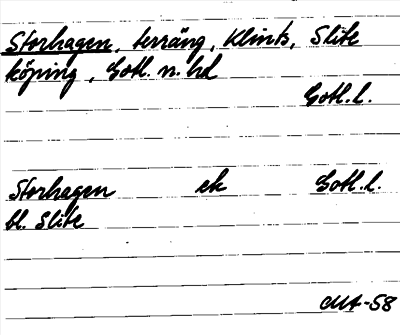 Storhagen, terräng, Klints, Slite
köping, Gotl. n. hd
Gotl. l.
Storhagen ek Gotl. l.
bl. Slite
CMA-58